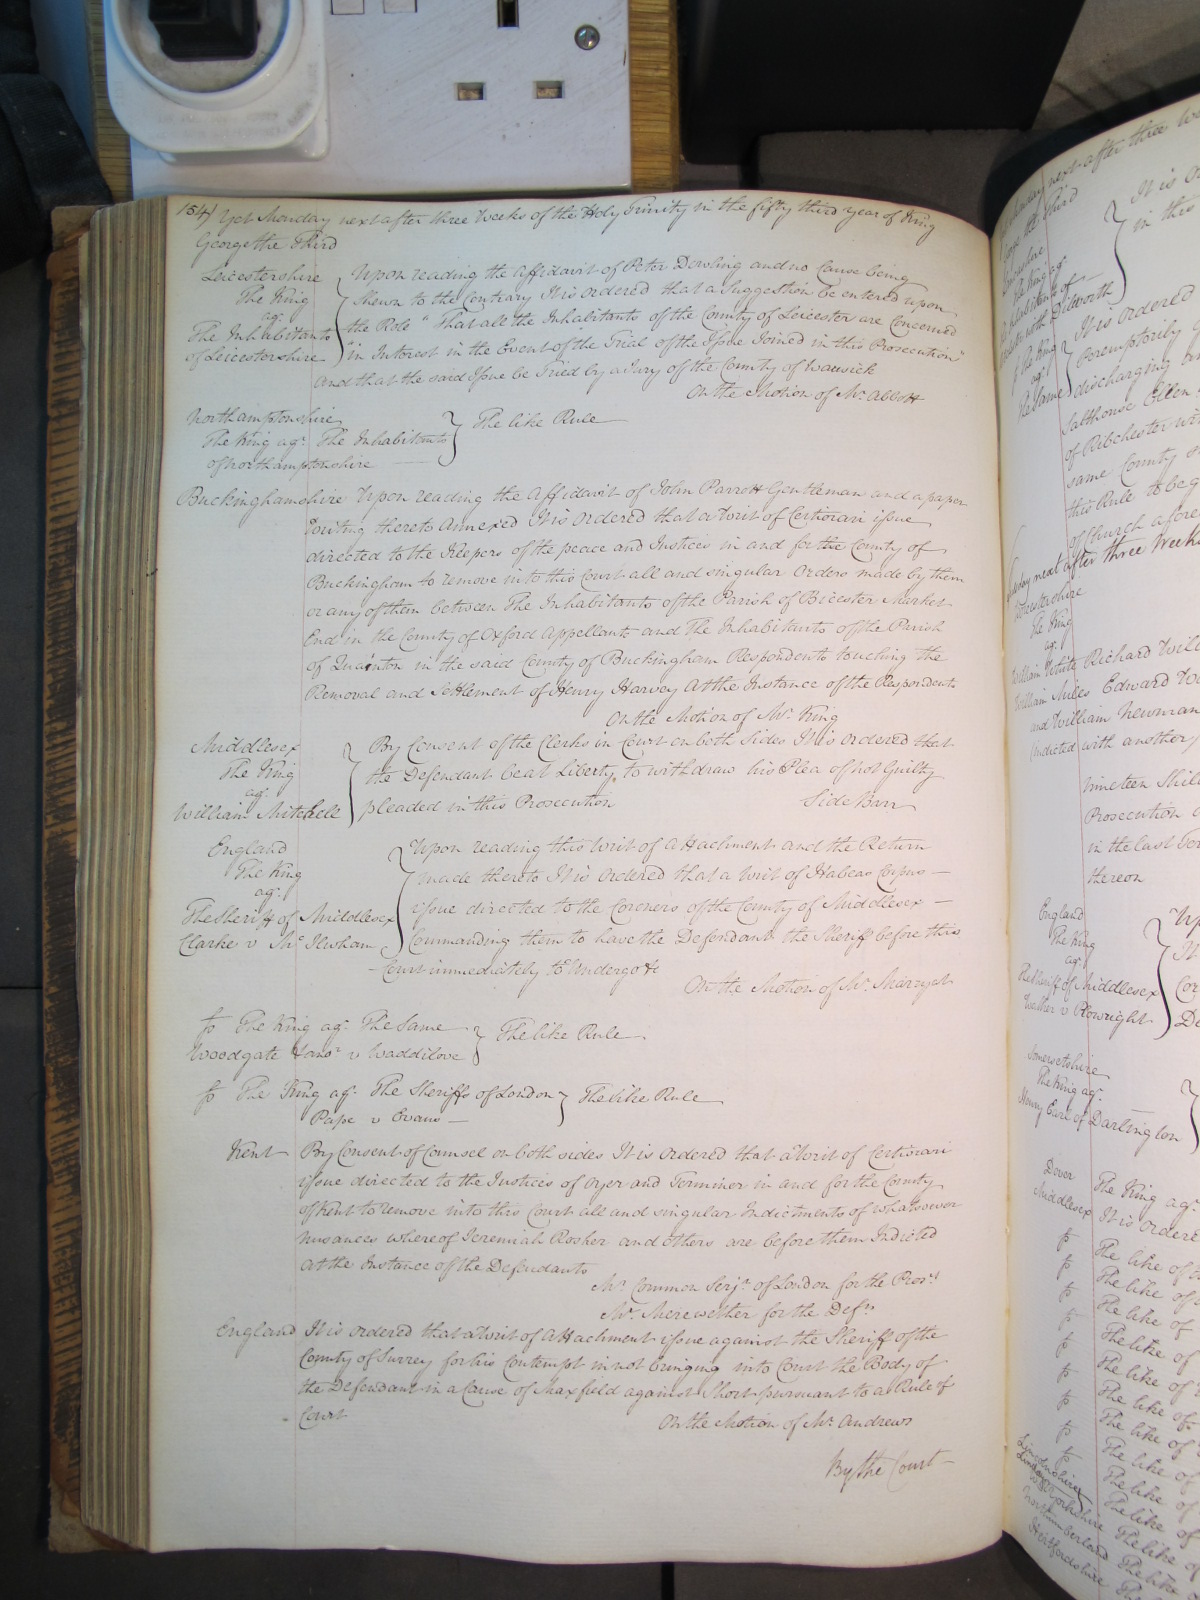 154/ Yet Monday next after three Weeks of the Holy Trinity in the fifty third year of King
George the Third
Leicestershire
The King
agt
The Inhabitants
of Leicestershire
Upon reading the Affidavit of Peter Dowling and no Cause being
Shewn to the Contrary It is ordered that a Suggestion be entered upon
the Role "That all the Inhabitants of the County of Leicester are Concerned
in Interest in the Event of the Trial of the Issue Joined in this Prosecution"
And that the said Issue be Tried by a Jury of the County of Warwick
On the Motion of Mr. Abbott
Northamptonshire
The King agt. The Inhabitants
of Northamptonshire
The like Rule
Buckinghamshire Upon reading the Affidavit of John Parrott Gentleman and a paper
Writing thereto Annexed It is Ordered that a Writ of Certiorari issue
directed to the Keepers of the peace and Justices in and for the County of
Buckingham to remove into this Court all and singular Orders made by them
or any of them between The Inhabitants of the Parish of Bicester Market
End in the County of Oxford Appellants and The Inhabitants of the Parish
of Quainton in the said County of Buckingham Respondents touching the
Removal and Settlement of Henry Harvey At the Instance of the Respondents
On the Motion of Mr. King
Middlesex
The King
agt
William Mitchell
By Consent of the Clerks in Court on both Sides It is Ordered that
the Defendant be at Liberty to withdraw his Plea of not Guilty
pleaded in this Prosecution
Side Barr
England
The King
agt.
The Sheriff of Middlesex
Clarke v
Upon reading this Writ of Attachment and the Return
made thereto It is Ordered that a Writ of Habeas Corpus
issue directed to the Coroners of the County of Middlesex
Commanding them to have the Defendant the Sheriff before this
Court immediately to Undergo &c
On the Motion of Mr. Marryat
fo The King agt. The Same
Woodgate & anor. v Waddilove
The like Rule
fo The King agt. The Sheriffs of London
Pape v Evans
The like Rule
Kent By Consent of Counsel on both sides It is Ordered that a Writ of Certiorari
issue directed to the Justices of Oyer and Terminer in and for the County
of Kent to remove into this Court all and singular Indictments of whatsoever
nusances whereof Jeremiah Rosher and others are before them Indicted
at the Instance of the Defendants
Mr. Common Serjt. of London for the Prosr.
Mr. Merewether for the Defts
England It is ordered that a Writ of Attachment issue against the Sheriff of the
County of Surrey for his Contempt in not bringing into Court the Body of
the Defendant in a Cause of Maxfield against Short pursuant to a Rule of
Court
On the Motion of Mr. Andrews
By the Court
next after three
It is
in this
It is Ordered
Peremptorily
discharging
Salthouse Ellen
of Ribchester
same County
this Rule to be
of Church
next after three Weeks
Worcestershire
The King
agt
William White Richard
William Miles Edward
and William Newman
(Indicted with another)
nineteen
Prosecution
in the last
thereon
England
The King
agt
The Sheriff of Middlesex
Walker v Plowright
Somersetshire
The King agt.
Henry Earl of Darlington
Dover
Middlesex
The King agt.
It is Ordered
fo The like of
fo The like of
fo The like of
fo The like of
fo The like of
fo The like of
fo The like of
fo The like of
Lincolnshire
Yorkshire The like of
Northumberland The like
Hertfordshire